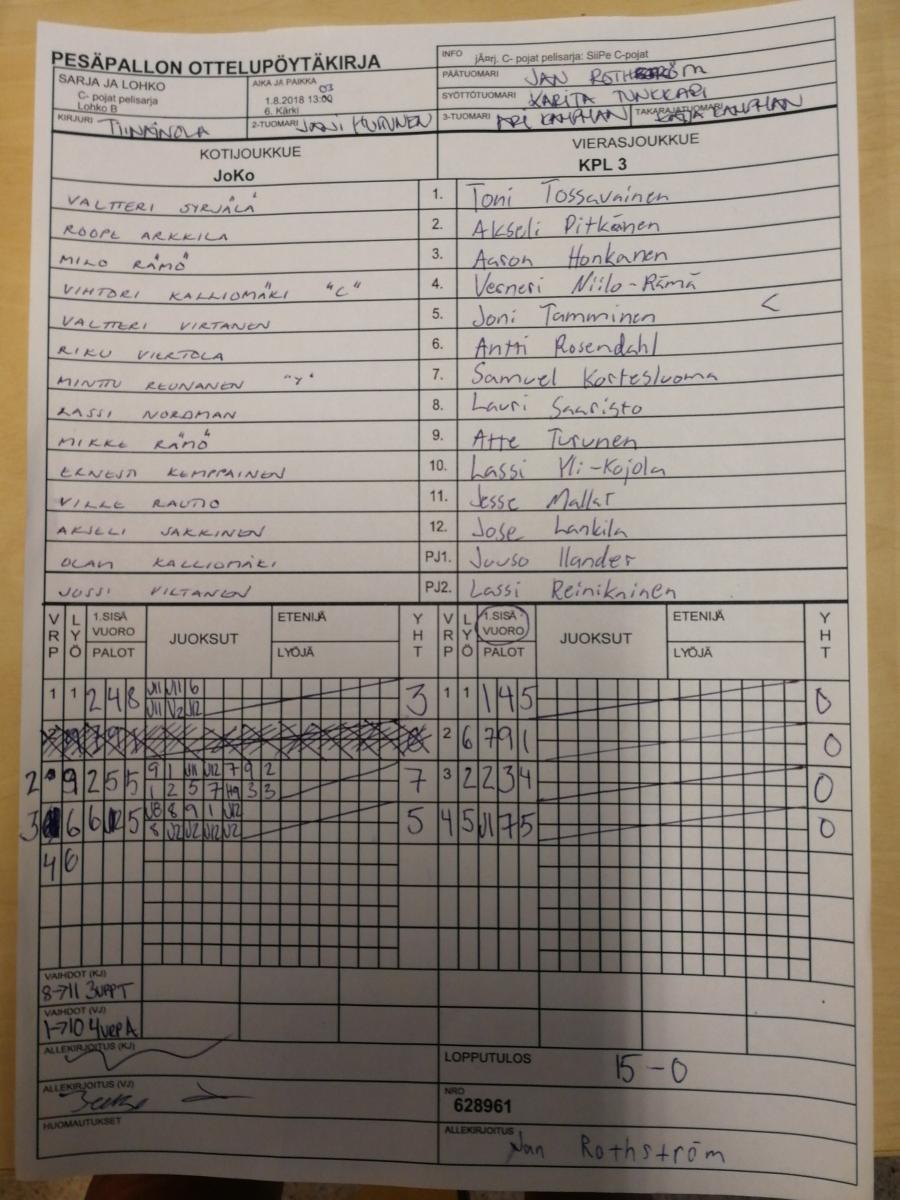 PESÄPALLON OTTELUPÖYTÄKIRJA
INFO jÃ¤rj. C- pojat pelisarja: SiiPe C-pojat
PÄÄTUOMARI JAN ROTHSTRÖM
SARJA JA LOHKO
C- pojat pelisarja
Lohko B
AIKA JA PAIKKA
1.8.2018 13:00 03
6. Kärki
SYÖTTÖTUOMARI KARITA TUNKKARI
KIRJURI
2-TUOMARI
3-TUOMARI ARI
TAKARAJATUOMARI
KOTIJOUKKUE
JoKo
VIERASJOUKKUE
KPL 3
VALTTERI SYRJÄLÄ 1. Toni Tossavainen
ROOPE ARKKILA 2. Akseli Pitkänen
MILO RÄMÖ 3. Aaron Honkanen
VIHTORI KALLIOMÄKI "C" 4. Verneri Niilo-Rämä
VALTTERI VIRTANEN 5. Joni Tamminen <
RIKU VIERTOLA 6. Antti Rosendahl
MINTTU REUNANEN "Y" 7. Samuel Kortesluoma
LASSI NORDMAN 8. Lauri Saaristo
MIKKE RÄMÖ 9. Atte Turunen
ERNESTI KEMPPAINEN 10. Lassi Yli-Kojola
VILLE RAUTIO 11. Jesse Mallat
AKSELI SAKKINEN 12. Jose Lankila
OLAVI KALLIOMÄKI PJ1. Juuso Ilander
JUSSI VILTANEN PJ2. Lassi Reinikainen
VRP LYÖ 1.SISÄ VUORO PALOT JUOKSUT ETENIJÄ LYÖJÄ YHT VRP LYÖ 1.SISÄ VUORO PALOT JUOKSUT ETENIJÄ LYÖJÄ YHT
1 1 2 4 8 J1 J1 6 3 1 1 1 4 5 0
J1 J2 J2
2 6 7 9 1 0
2 9 2 5 5 9 1 J1 J2 7 9 2 7 3 2 2 3 4 0
1 2 5 7 3 3
3 6 6 5 8 9 1 J2 5 4 5 J1 7 5 0
8 J2 J2 J2 J2
4 6
VAIHDOT (KJ)
8→11 3VPPT
VAIHDOT (VJ)
1→10 4VRPA
ALLEKIRJOITUS (KJ)
LOPPUTULOS 15-0
ALLEKIRJOITUS (VJ)
NRO
628961
HUOMAUTUKSET
ALLEKIRJOITUS
Jan Rothström